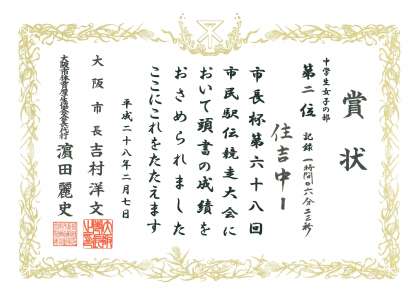 賞状
中学生女子の部
第二位
記録 一時間〇六分二二秒
住吉中1
市長杯第六十八回
市民駅伝競走大会に
おいて頭書の成績を
おさめられました
ここにこれをたたえます
平成二十八年二月七日
大阪市長 吉村洋文
濵田麗史